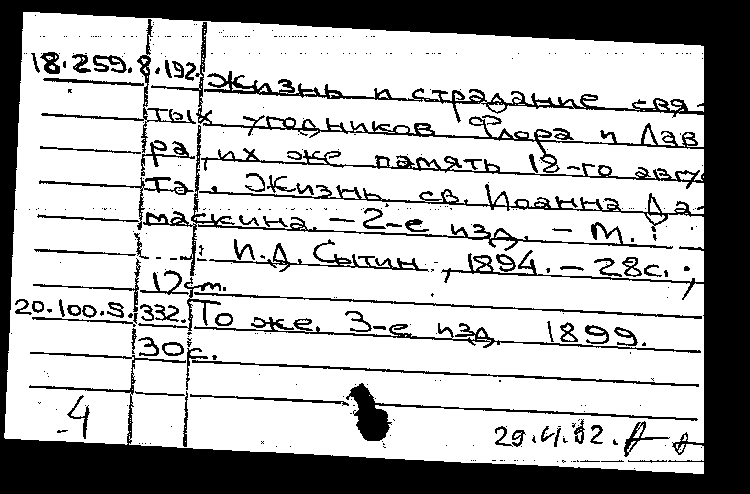 18.259.8.192. Жизнь и страдание свя-
тых угодников Флора и Лав
ра, их же память 18-го авгу
та. Жизнь св. Иоанна Да-
маскина. - 2-е изд. - М.:
И.Д. Сытин, 1894. - 28с.;
17см.
20.100.8.332. То же. 3-е изд. 1899.
30с.
4